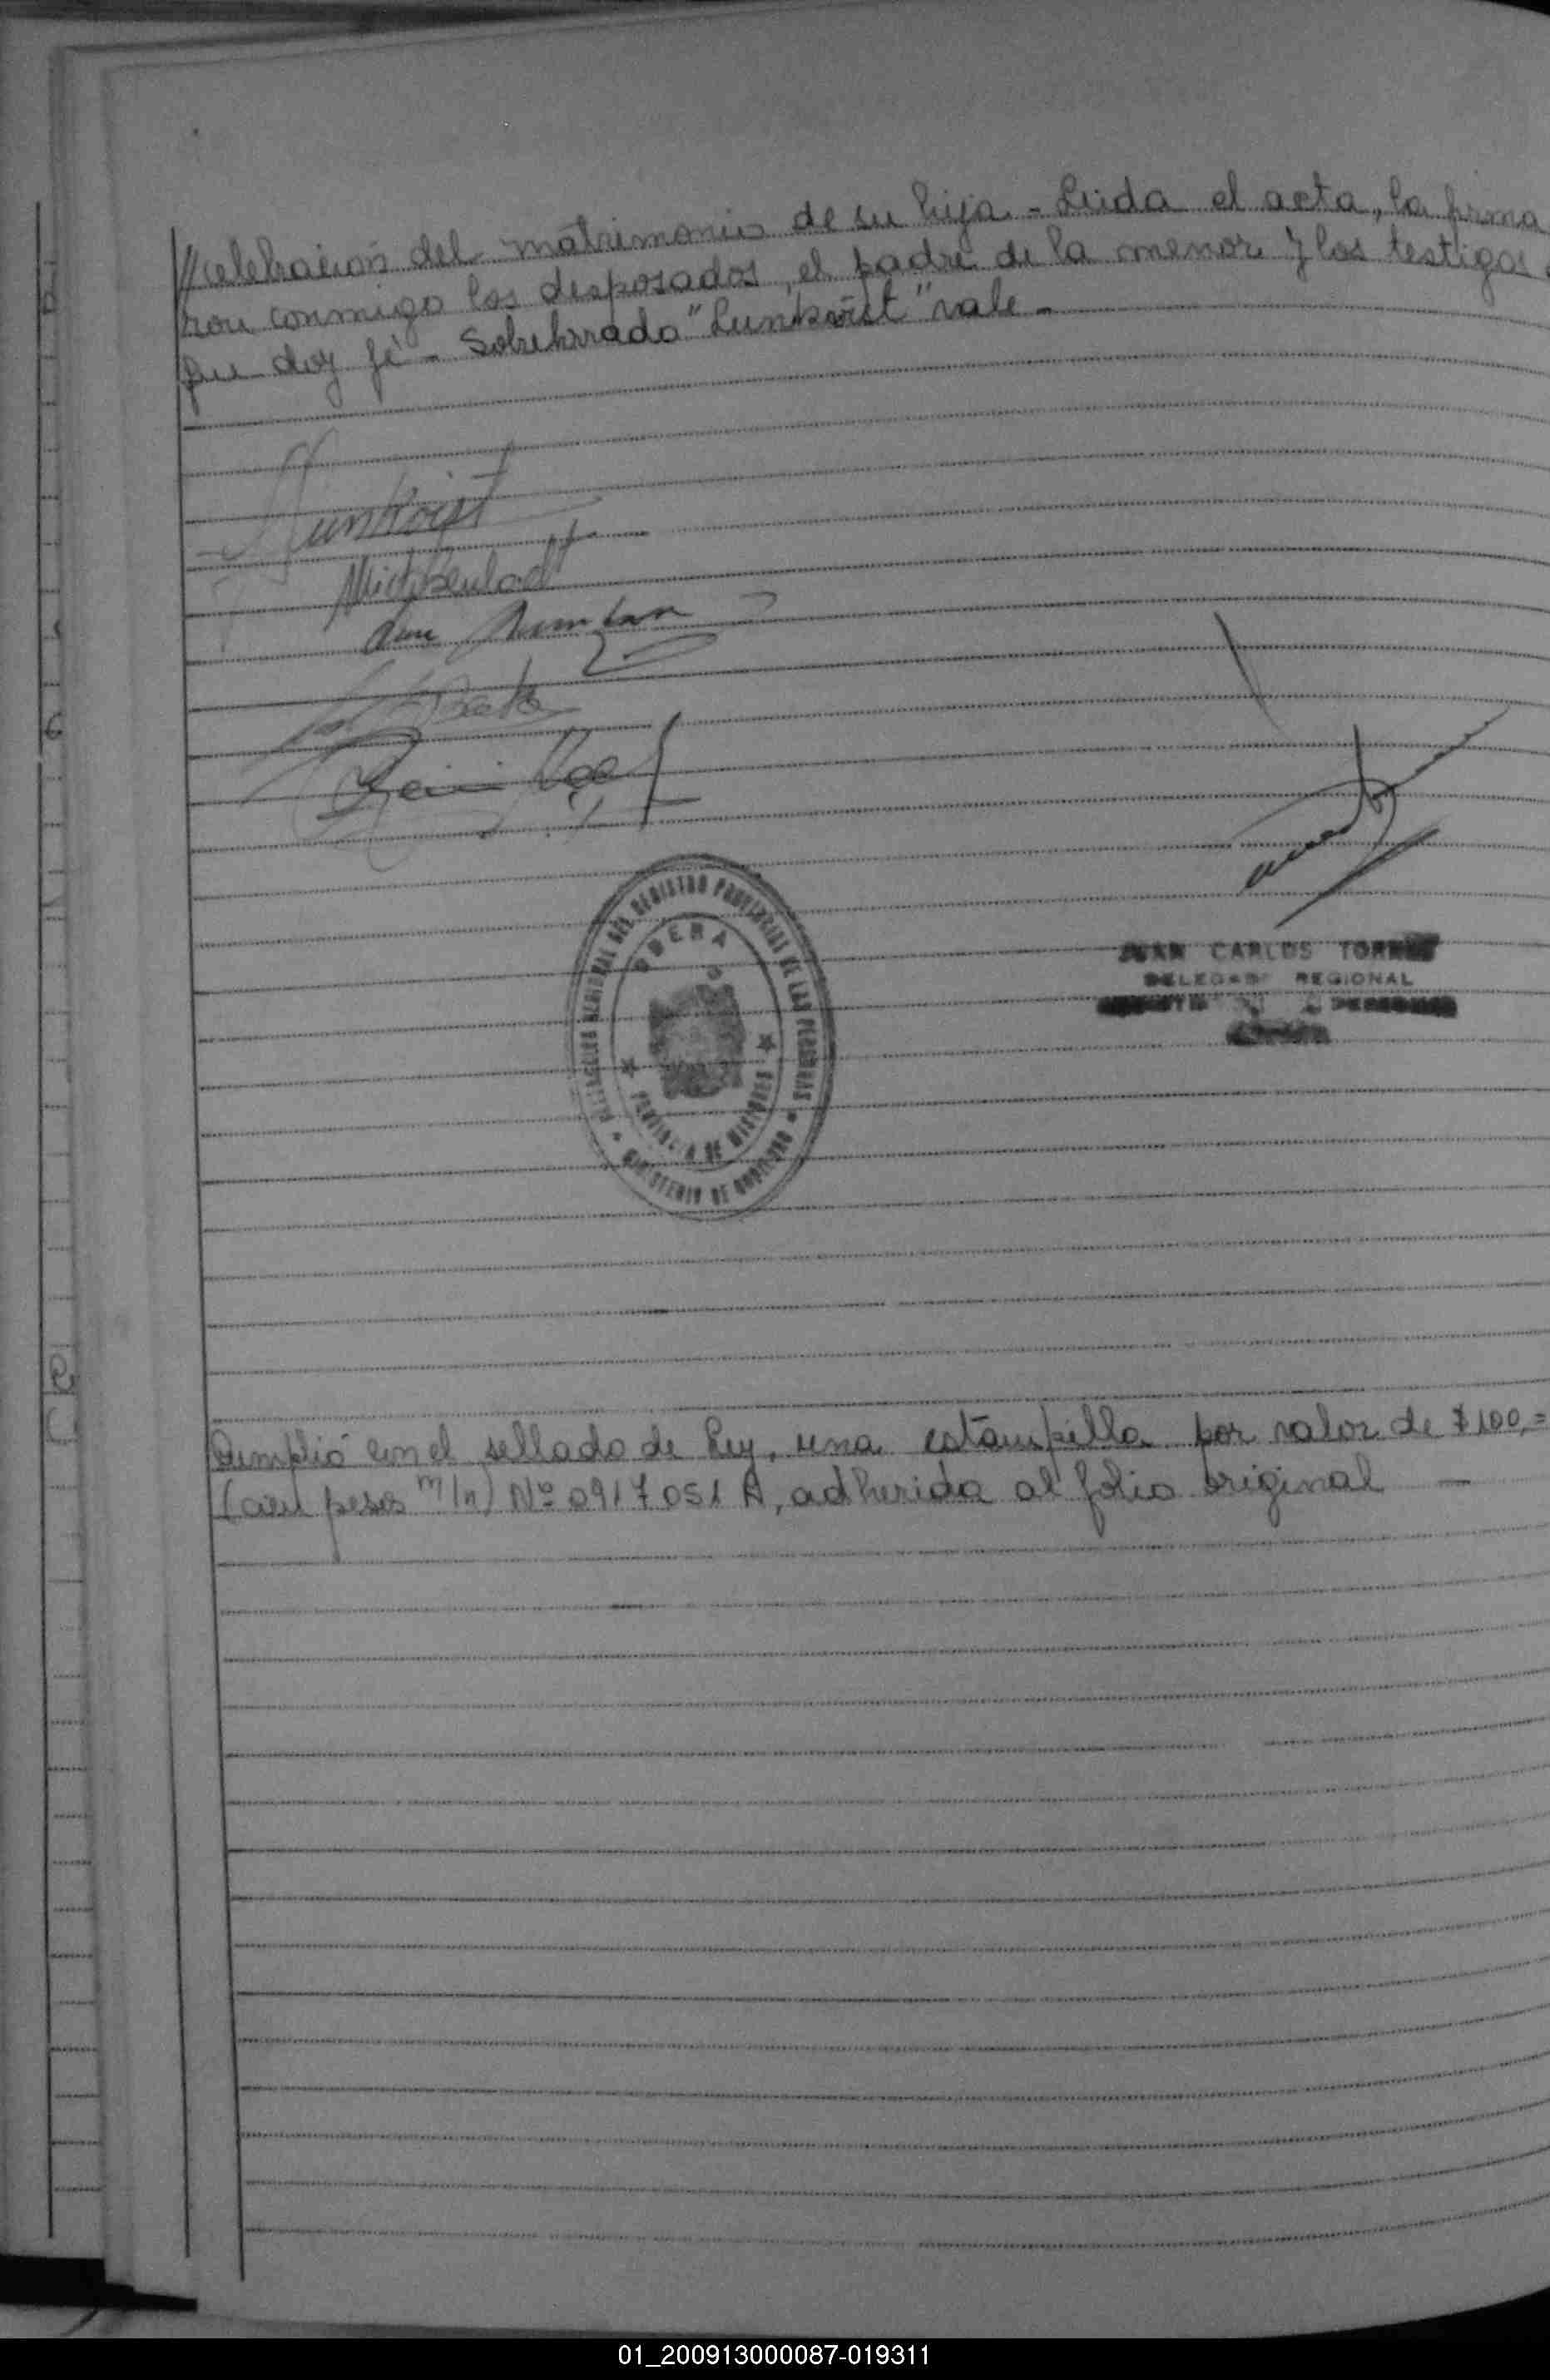 //celebración del matrimonio de su hija. - Leída el acta, la firma
ron conmigo los desposados, el padre de la menor y los testigos
que doy fé - Sobreborrado "Lunkvist" vale -
Lunkvist
JUAN CARLOS TORRES
DELEGADO REGIONAL
DELEGACION REGIONAL DEL REGISTRO PROVINCIAL DE LAS PERSONAS
OBERA
PROVINCIA DE MISIONES
MINISTERIO DE GOBIERNO
Cumplió con el sellado de Ley, una estampilla por valor de $ 100,=
(cien pesos m/n) Nº 0917051 A, adherida al folio original —
01_200913000087-019311